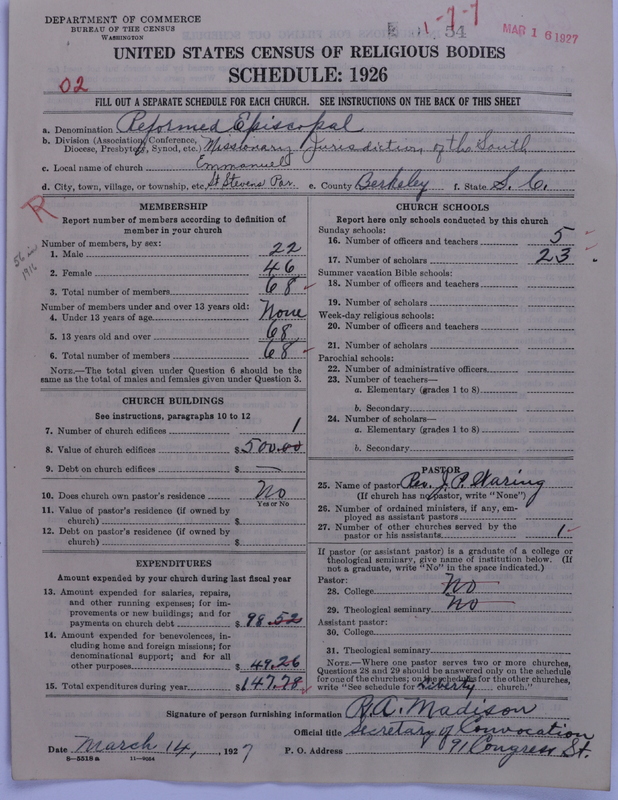 DEPARTMENT OF COMMERCE
BUREAU OF THE CENSUS
WASHINGTON
1-7-7
54
MAR 16 1927
UNITED STATES CENSUS OF RELIGIOUS BODIES
SCHEDULE: 1926
02
FILL OUT A SEPARATE SCHEDULE FOR EACH CHURCH. SEE INSTRUCTIONS ON THE BACK OF THIS SHEET
a. Denomination Reformed Episcopal
b. Division (Association, Conference, Diocese, Presbytery, Synod, etc.) Missionary Jurisdiction of the South
c. Local name of church Emmanuel
d. City, town, village, or township, etc. St Stevens Par. e. County Berkeley f. State S. C.
R
56 in 1916
MEMBERSHIP
Report number of members according to definition of
member in your church
Number of members, by sex:
1. Male 22
2. Female 46
3. Total number of members 68
Number of members under and over 13 years old:
4. Under 13 years of age None
5. 13 years old and over 68
6. Total number of members 68
NOTE.—The total given under Question 6 should be the
same as the total of males and females given under Question 3.
CHURCH BUILDINGS
See instructions, paragraphs 10 to 12
7. Number of church edifices 1
8. Value of church edifices $500.00
9. Debt on church edifices $ —
10. Does church own pastor's residence No
Yes or No
11. Value of pastor's residence (if owned by
church) $
12. Debt on pastor's residence (if owned by
church) $
EXPENDITURES
Amount expended by your church during last fiscal year
13. Amount expended for salaries, repairs,
and other running expenses; for im-
provements or new buildings; and for
payments on church debt $98.52
14. Amount expended for benevolences, in-
cluding home and foreign missions; for
denominational support; and for all
other purposes $49.26
15. Total expenditures during year $147.78
CHURCH SCHOOLS
Report here only schools conducted by this church
Sunday schools:
16. Number of officers and teachers 5
17. Number of scholars 23
Summer vacation Bible schools:
18. Number of officers and teachers
19. Number of scholars
Week-day religious schools:
20. Number of officers and teachers
21. Number of scholars
Parochial schools:
22. Number of administrative officers
23. Number of teachers—
a. Elementary (grades 1 to 8)
b. Secondary
24. Number of scholars—
a. Elementary (grades 1 to 8)
b. Secondary
PASTOR
25. Name of pastor Rev. J. P. Waring
(If church has no pastor, write "None")
26. Number of ordained ministers, if any, em-
ployed as assistant pastors
27. Number of other churches served by the
pastor or his assistants 1
If pastor (or assistant pastor) is a graduate of a college or
theological seminary, give name of institution below. (If
not a graduate, write "No" in the space indicated.)
Pastor:
28. College No
29. Theological seminary No
Assistant pastor:
30. College
31. Theological seminary
NOTE.—Where one pastor serves two or more churches,
Questions 28 and 29 should be answered only on the schedule
for one of the churches; on the schedules for the other churches,
write "See schedule for Liberty church."
Signature of person furnishing information R. A. Madison
Official title Secretary of Convocation
Date March 14, 1927 P. O. Address 91 Congress St.
8—5518 a 11—9054